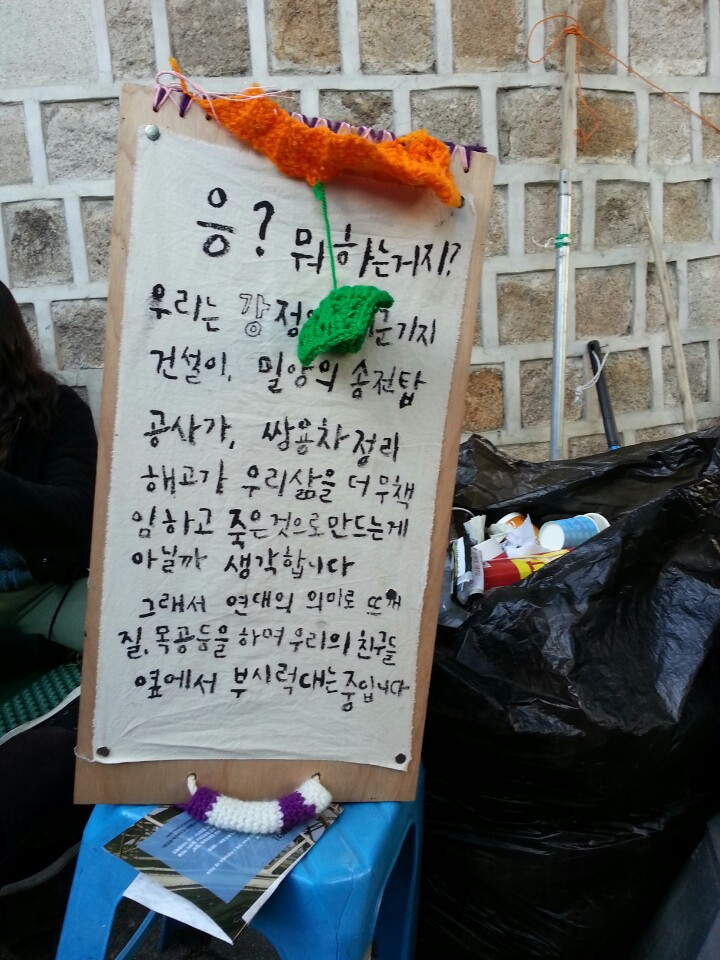 응? 뭐하는거지?
우리는 강정 기지
건설이, 밀양의 송전탑
공사가, 쌍용차 정리
해고가 우리삶을 더 무책
임하고 죽은것으로 만드는게
아닐까 생각합니다
그래서 연대의 의미로 뜨개
질, 목공등을 하며 우리의 친구들
옆에서 부시럭대는중입니다